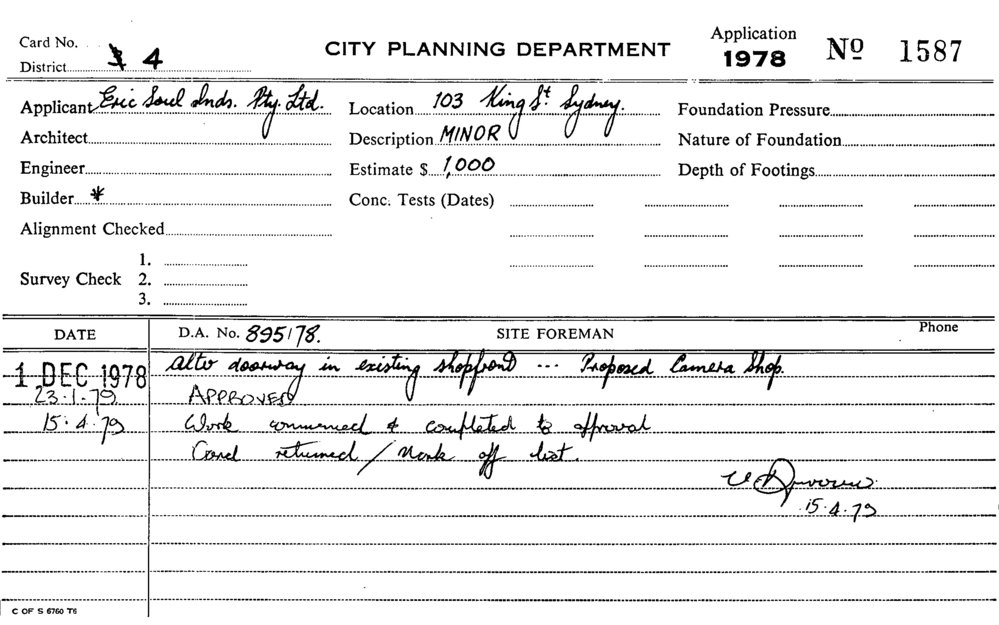 Card No.
CITY PLANNING DEPARTMENT
Application
1978
Nº 1587
District 3 4
Applicant Eric Soul Inds. Pty. Ltd.
Location 103 King St Sydney.
Foundation Pressure
Architect
Description MINOR
Nature of Foundation
Engineer
Estimate $ 1,000
Depth of Footings
Builder *
Conc. Tests (Dates)
Alignment Checked
Survey Check 1.
2.
3.
DATE
D.A. No. 895/78.
SITE FOREMAN
Phone
1 DEC 1978 alter doorway in existing shopfront --- Proposed Camera Shop.
23.1.79. APPROVED
15.4.79 Work commenced & completed to approval
Card returned / Mark off list.
15.4.79
C OF S 6760 T6